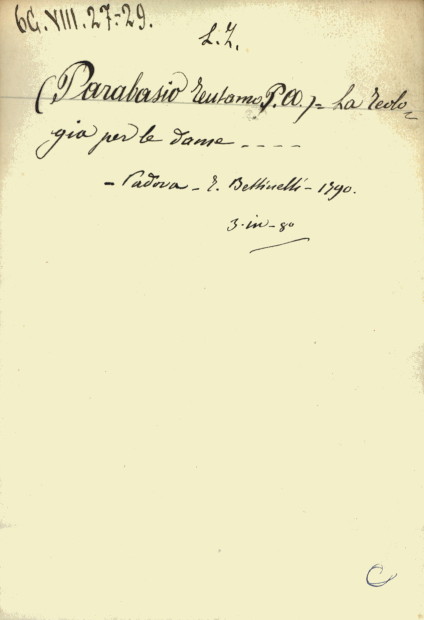 6G.VIII.27-29.
L.Z.
(Parabasio Teutamo P.A.) = La Teolo-
gia per le dame ----
- Padova - T. Bettinelli - 1790.
3. in - 8º
C